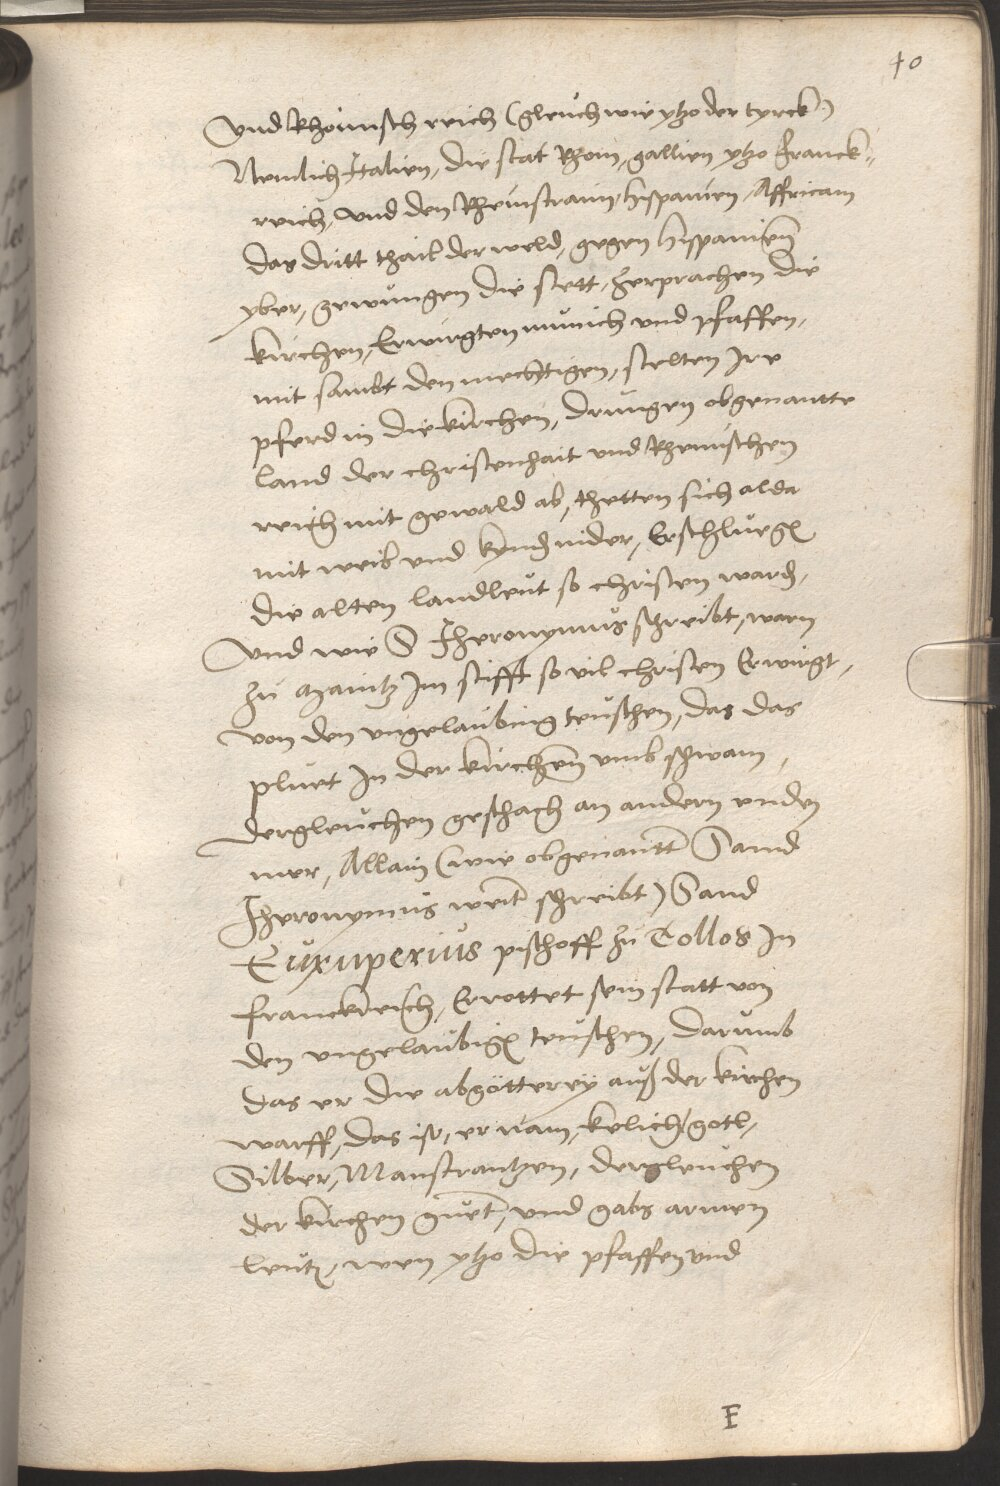 40
Vnd Rhömisch reich (gleuch wie ytzo der tyrck)
Nemlich Italien, die stat Rhom, gallien ytzo franck-
reich, vnd den Rheinstraim, hispanien, Affricam
das dritt thail der weld, gegen hispanienn
yber, gewungen die stett, zerprachen die
kirchen, Erwirgten munich vnd pfaffen,
mit sambt den mechtigen, stelten Ire
pferd in die kirchen, drungen obgenante
land der christenhait vnd Rhemischen
reich mit gewald ab, thetten sich alda
mit weib vnd kynd nider, Erschluegen
die alten landleut so christen warden,
Vnd wie S Iheronymus schreibt, warn
zu Maintz Im stifft so vil christen Erwirgt,
von den vngelaubing teuschen, das das
pluet In der kirchenn vmb schwam,
dergleuchen geschach an andern enden
mer, Allain (wie obgenantt Sannd
Iheronymus weit schreibt) Sand
Euxuperius pischoff zu Tollos In
franckreich, Errottet sein statt von
den vngelaubigen teuschen, darumb
das er die abgötterey auß der kirchen
warff, das ist, er nam, kelich, gotl,
Silber, Manstrantzen, dergleuchen
der kirchen guett, vnd gabs armen
leuten, wen ytzo die pfaffen vnd
E